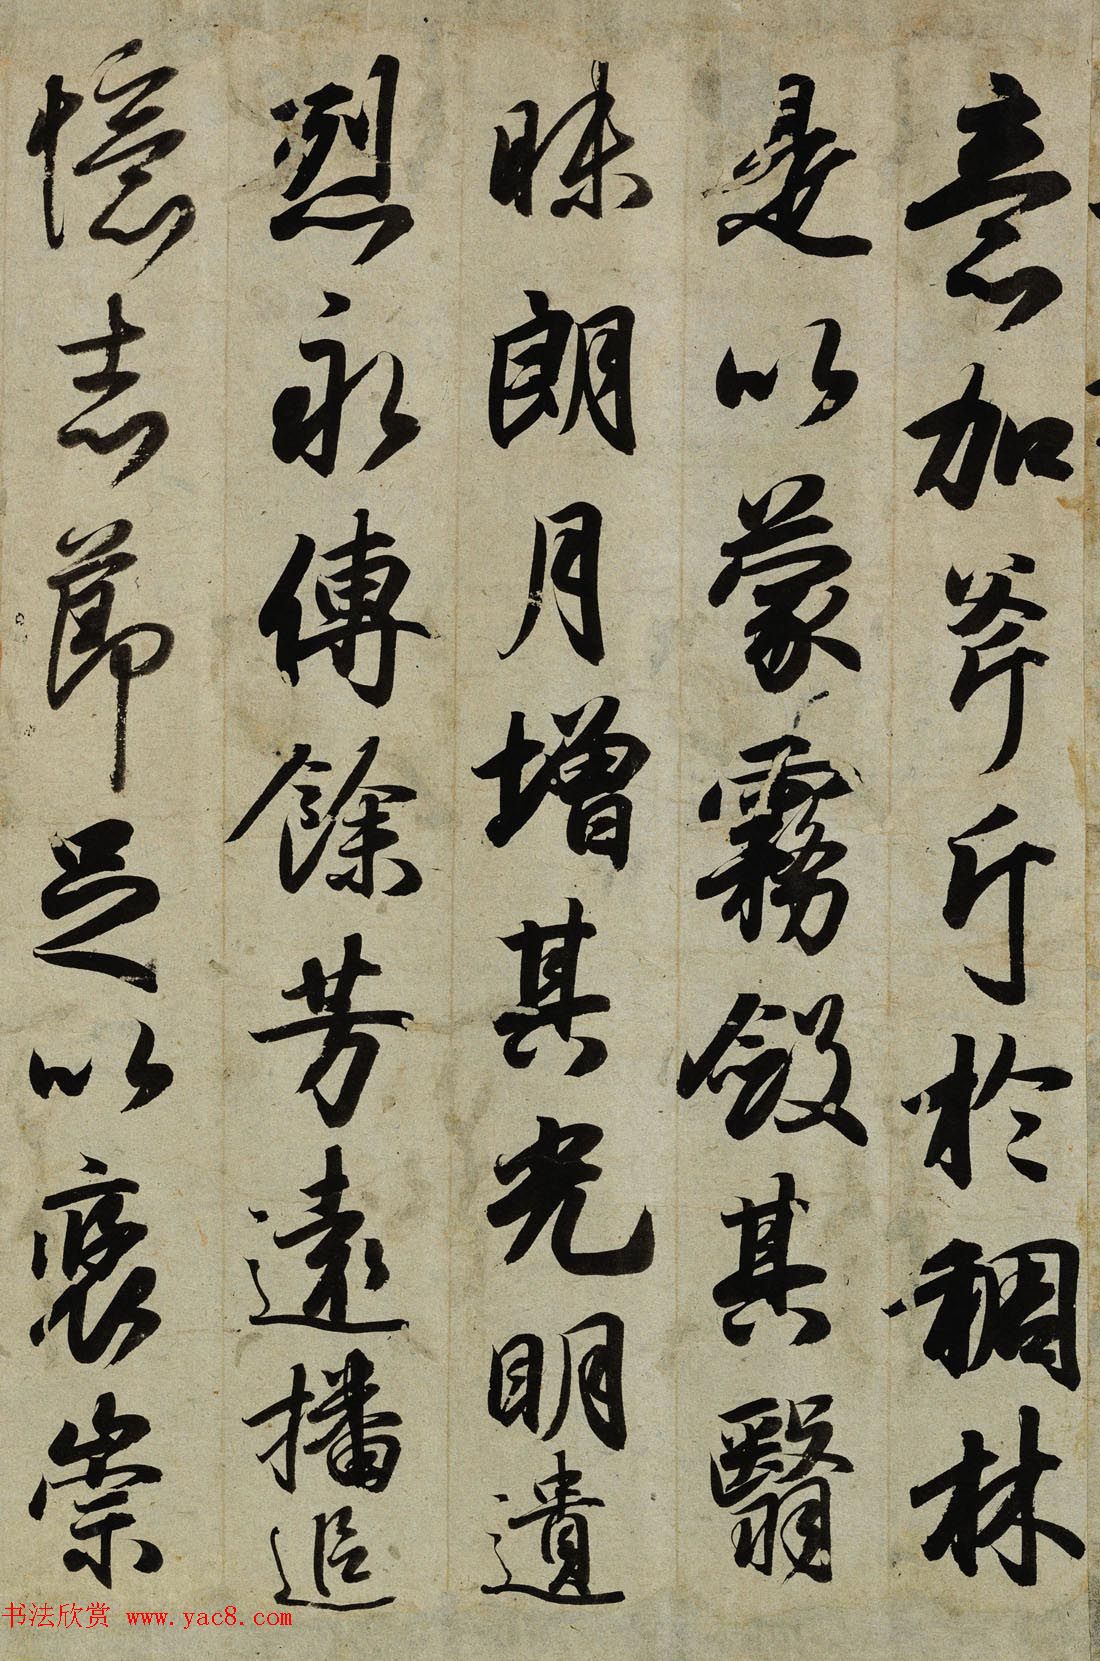 意加斧斤於稠林
是以蒙霧斂其翳
昧朗月增其光明遺
烈永傳餘芳遠播追
憶志節足以褒崇
书法欣赏 www.yac8.com